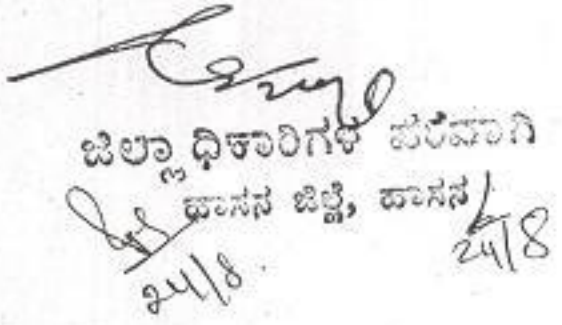 ಜಿಲ್ಲಾಧಿಕಾರಿಗಳ ಪರವಾಗಿ
ಹಾಸನ ಜಿಲ್ಲೆ, ಹಾಸನ
24/8
24/8